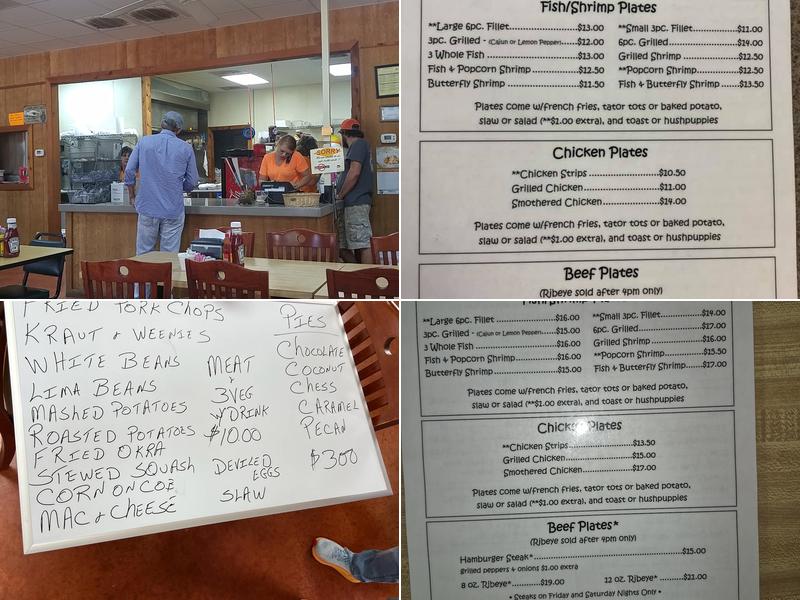 SORRY
Fish/Shrimp Plates
**Large 6pc. Fillet.....................$13.00 **Small 3pc. Fillet.................$11.00
3pc. Grilled - (Cajun or Lemon Pepper)......$12.00 6pc. Grilled..........................$14.00
3 Whole Fish ...........................$13.00 Grilled Shrimp .....................$12.50
Fish & Popcorn Shrimp............$12.50 **Popcorn Shrimp ...............$12.50
Butterfly Shrimp .....................$11.50 Fish & Butterfly Shrimp......$13.50
Plates come w/french fries, tator tots or baked potato,
slaw or salad (**$1.00 extra), and toast or hushpuppies
Chicken Plates
**Chicken Strips .......................$10.50
Grilled Chicken.........................$11.00
Smothered Chicken..................$14.00
Plates come w/french fries, tator tots or baked potato,
slaw or salad (**$1.00 extra), and toast or hushpuppies
Beef Plates
(Ribeye sold after 4pm only)
FRIED PORK CHOPS
KRAUT & WEENIES
WHITE BEANS
LIMA BEANS
MASHED POTATOES
ROASTED POTATOES
FRIED OKRA
STEWED SQUASH
CORN ON COB
MAC & CHEESE
MEAT
&
3 VEG
w/DRINK
$10.00
DEVILED
EGGS
SLAW
PIES
CHOCOLATE
COCONUT
CHESS
CARAMEL
PECAN
$3.00
**Large 6pc. Fillet .....................$16.00 **Small 3pc. Fillet.................$14.00
3pc. Grilled - (Cajun or Lemon Pepper)......$15.00 6pc. Grilled..........................$17.00
3 Whole Fish ...........................$16.00 Grilled Shrimp .....................$16.00
Fish & Popcorn Shrimp............$16.00 **Popcorn Shrimp................$15.50
Butterfly Shrimp .....................$15.00 Fish & Butterfly Shrimp......$17.00
Plates come w/french fries, tator tots or baked potato,
slaw or salad (**$1.00 extra), and toast or hushpuppies
Chicken Plates
**Chicken Strips.......................$13.50
Grilled Chicken.........................$15.00
Smothered Chicken..................$17.00
Plates come w/french fries, tator tots or baked potato,
slaw or salad (**$1.00 extra), and toast or hushpuppies
Beef Plates*
(Ribeye sold after 4pm only)
Hamburger Steak*..............................................$15.00
grilled peppers & onions $1.00 extra
8 oz. Ribeye*...............$19.00 12 oz. Ribeye* ...............$21.00
• Steaks on Friday and Saturday Nights Only •